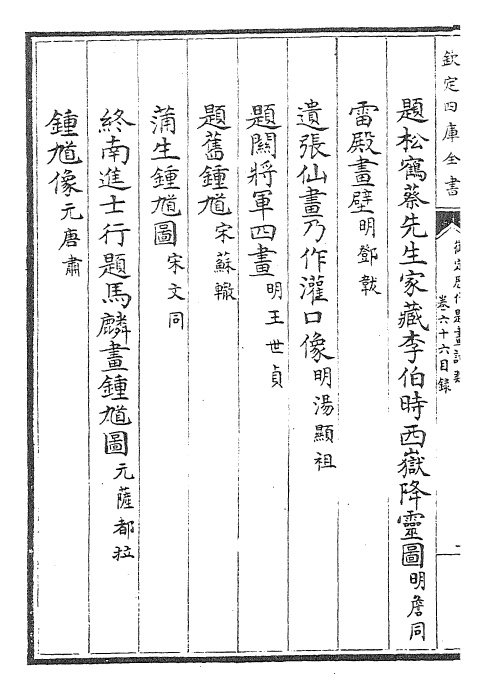 欽定四庫全書
御定歷代題畫詩類
卷六十六目錄
題松鶴蔡先生家藏李伯時西嶽降靈圖 明詹同
雷殿畫壁 明鄧䪺
遺張仙畫乃作灌口像 明湯顯祖
題關將軍四畫 明王世貞
題舊鍾馗 宋蘇轍
蒲生鍾馗圖 宋文同
終南進士行題馬麟畫鍾馗圖 元薩都拉
鍾馗像 元唐肅